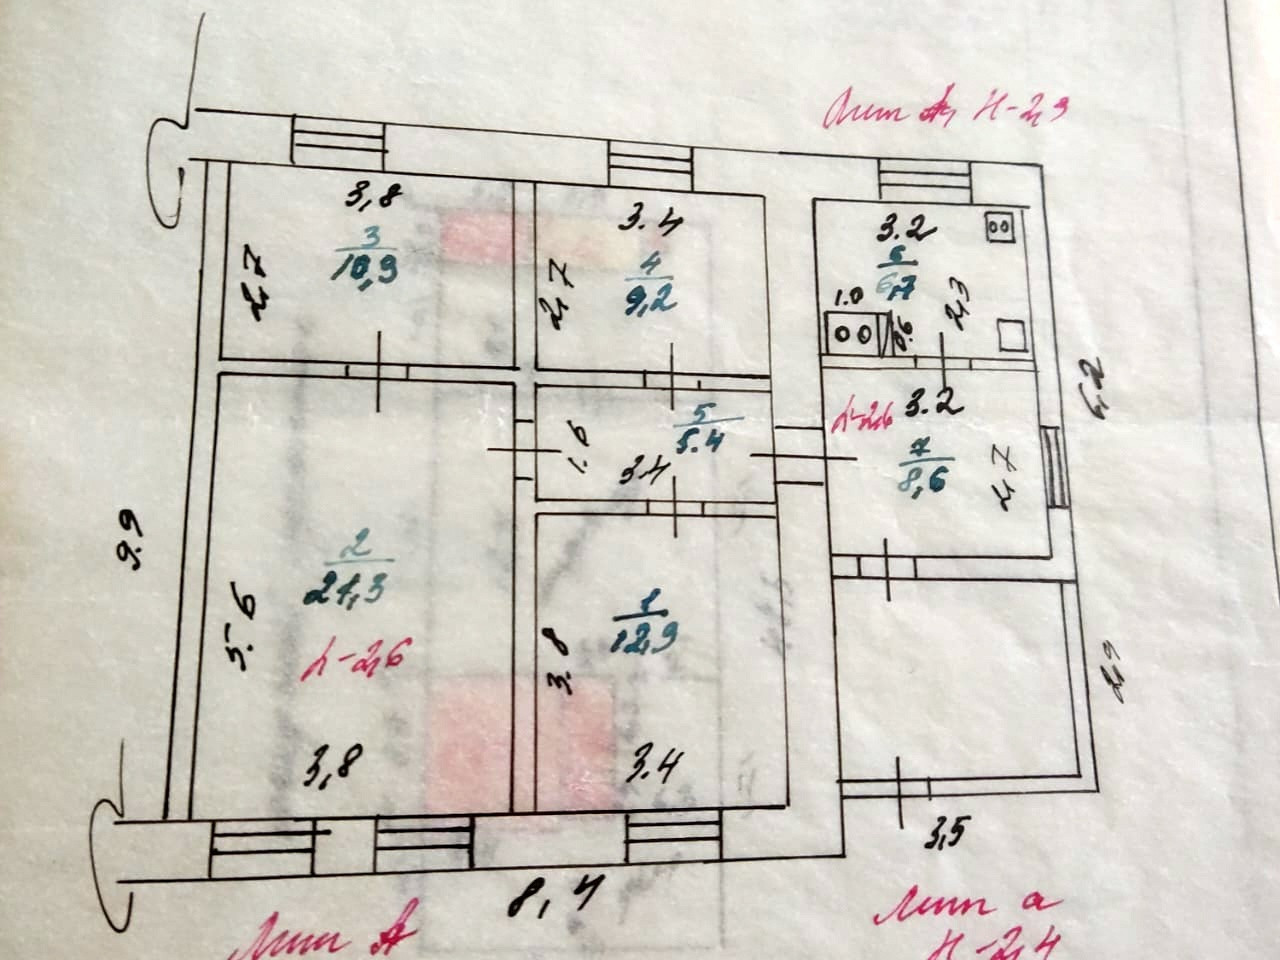 Лит А, Н-2,9
3,8
3
10,9
2,7
3.4
4
9,2
2,7
3.2
6
6,7
1.0
0.6
2,3
h-2,6
3.2
7
8,6
2,7
6,2
5
5.4
1.6
3.4
9.9
2
21,3
5.6
h-2,6
3,8
1
12,9
3.8
3.4
2,9
3,5
8,4
Лит А
Лит а
Н-2,4